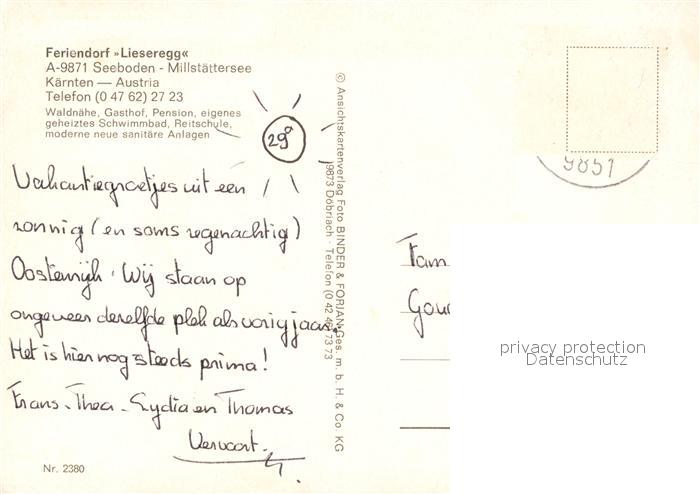 Feriendorf »Lieseregg«
A-9871 Seeboden - Millstättersee
Kärnten — Austria
Telefon (0 47 62) 27 23
Waldnähe, Gasthof, Pension, eigenes
geheiztes Schwimmbad, Reitschule,
moderne neue sanitäre Anlagen
29°
Vakantiegroetjes uit een
zonnig (en soms regenachtig)
Oostenrijk. Wij staan op
ongeveer dezelfde plek als vorig jaar.
Het is hier nog steeds prima!
Frans - Thea - Lydia en Thomas
Vervoort.
Nr. 2380
© Ansichtskartenverlag Foto BINDER & FORJAN Ges. m. b. H. & Co. KG
9873 Döbriach · Telefon (0 42 46) 73 73
9851
Fam
Gou
privacy protection
Datenschutz